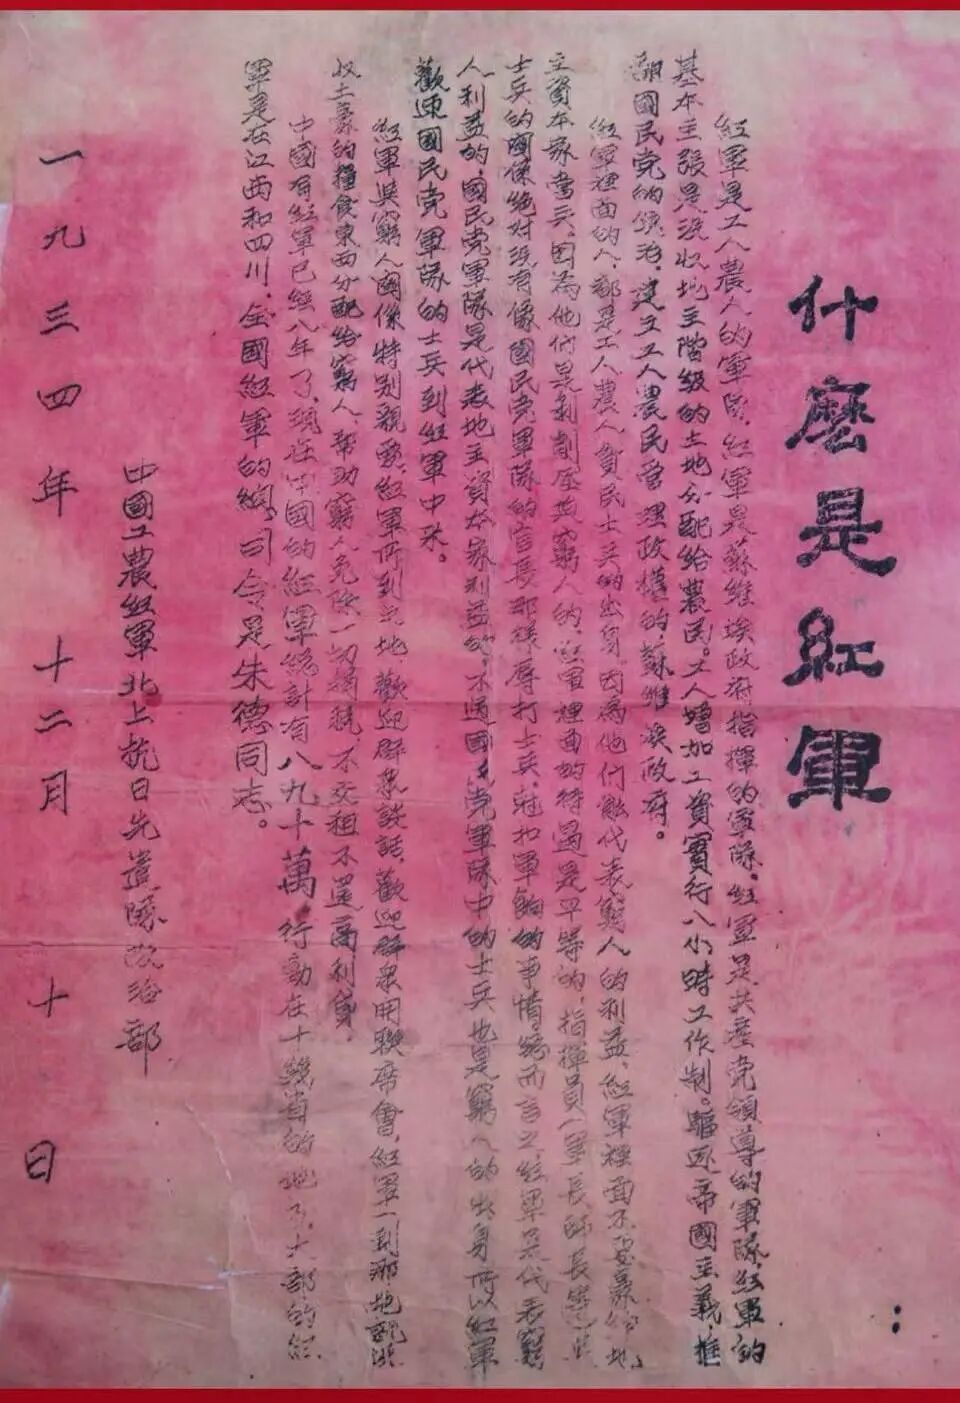 什麽是紅軍：
紅軍是工人農人的軍隊，紅軍是蘇維埃政府指揮的軍隊。紅軍是共產党領導的軍隊，紅軍的
基本主張是沒收地主階級的土地分配給農民。工人增加工資實行八小時工作制。驅逐帝國主義，推
翻國民党的統治，建立工人農民管理政權的蘇維埃政府。
紅軍裡面的人，都是工人農人貧民士兵的出身，因為他们能代表窮人的利益，紅軍裡面不要豪紳地
主資本家當兵，因為他们是剥削壓迫窮人的，紅軍裡面的待遇是平等的，指揮員（軍長、師長等）
士兵的關係絕对沒有像國民党軍隊的官長那樣辱打士兵，尅扣軍餉的事情。總而言之，紅軍是代表窮
人利益的，國民党軍隊是代表地主資本家利益的，不過國民党軍隊中的士兵也是窮人的出身所以紅軍
歡迎國民党軍隊的士兵到紅軍中來。
紅軍與窮人關係特別親愛，紅軍所到之地，歡迎群衆談話，歡迎群衆開聯席會，紅軍一到那地就
收土豪的糧食東西分配給窮人，帮助窮人免除一切捐税，不交租不還高利貸。
中國有紅軍已經八年了，現在中國的紅軍總計有八九十萬行動在十幾省的地方，大部的紅
軍是在江西和四川，全國紅軍的總司令是朱德同志。
中國工農紅軍北上抗日先遣隊政治部
一九三四年十二月十日